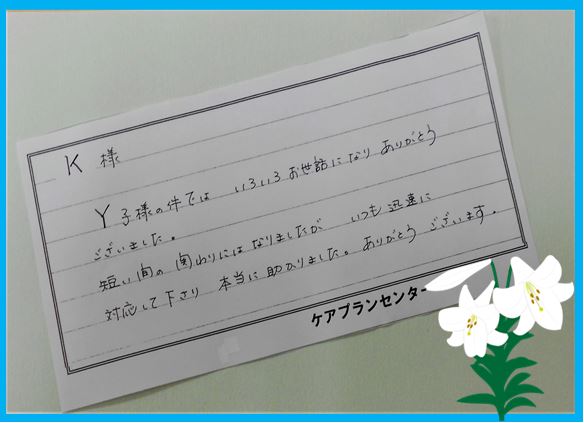 K 様
Y子様の件では いろいろお世話になり ありがとう
ございました。
短い間の関わりにはなりましたが いつも迅速に
対応して下さり 本当に助かりました。ありがとう ございます.
ケアプランセンター